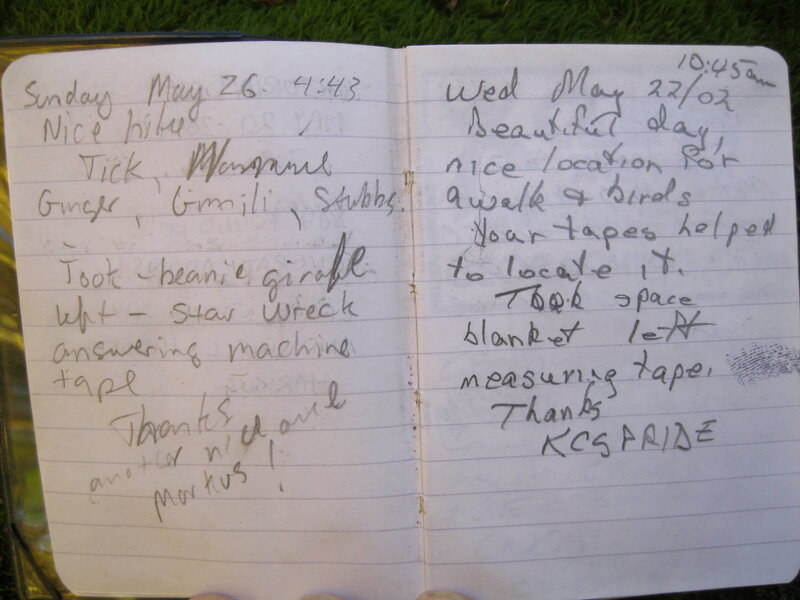 Sunday May 26. 4:43
Nice hike
Tick,
Ginger, Gimili, Stubbs.
Took - beanie giraffe
left - Star Wreck
answering machine
tape
Thanks
another nice one
Markus!
10:45am
Wed May 22/02
Beautiful day,
nice location for
a walk & birds
Your tapes helped
to locate it.
Took space
blanket left
measuring tape.
Thanks
KCSPRIDE